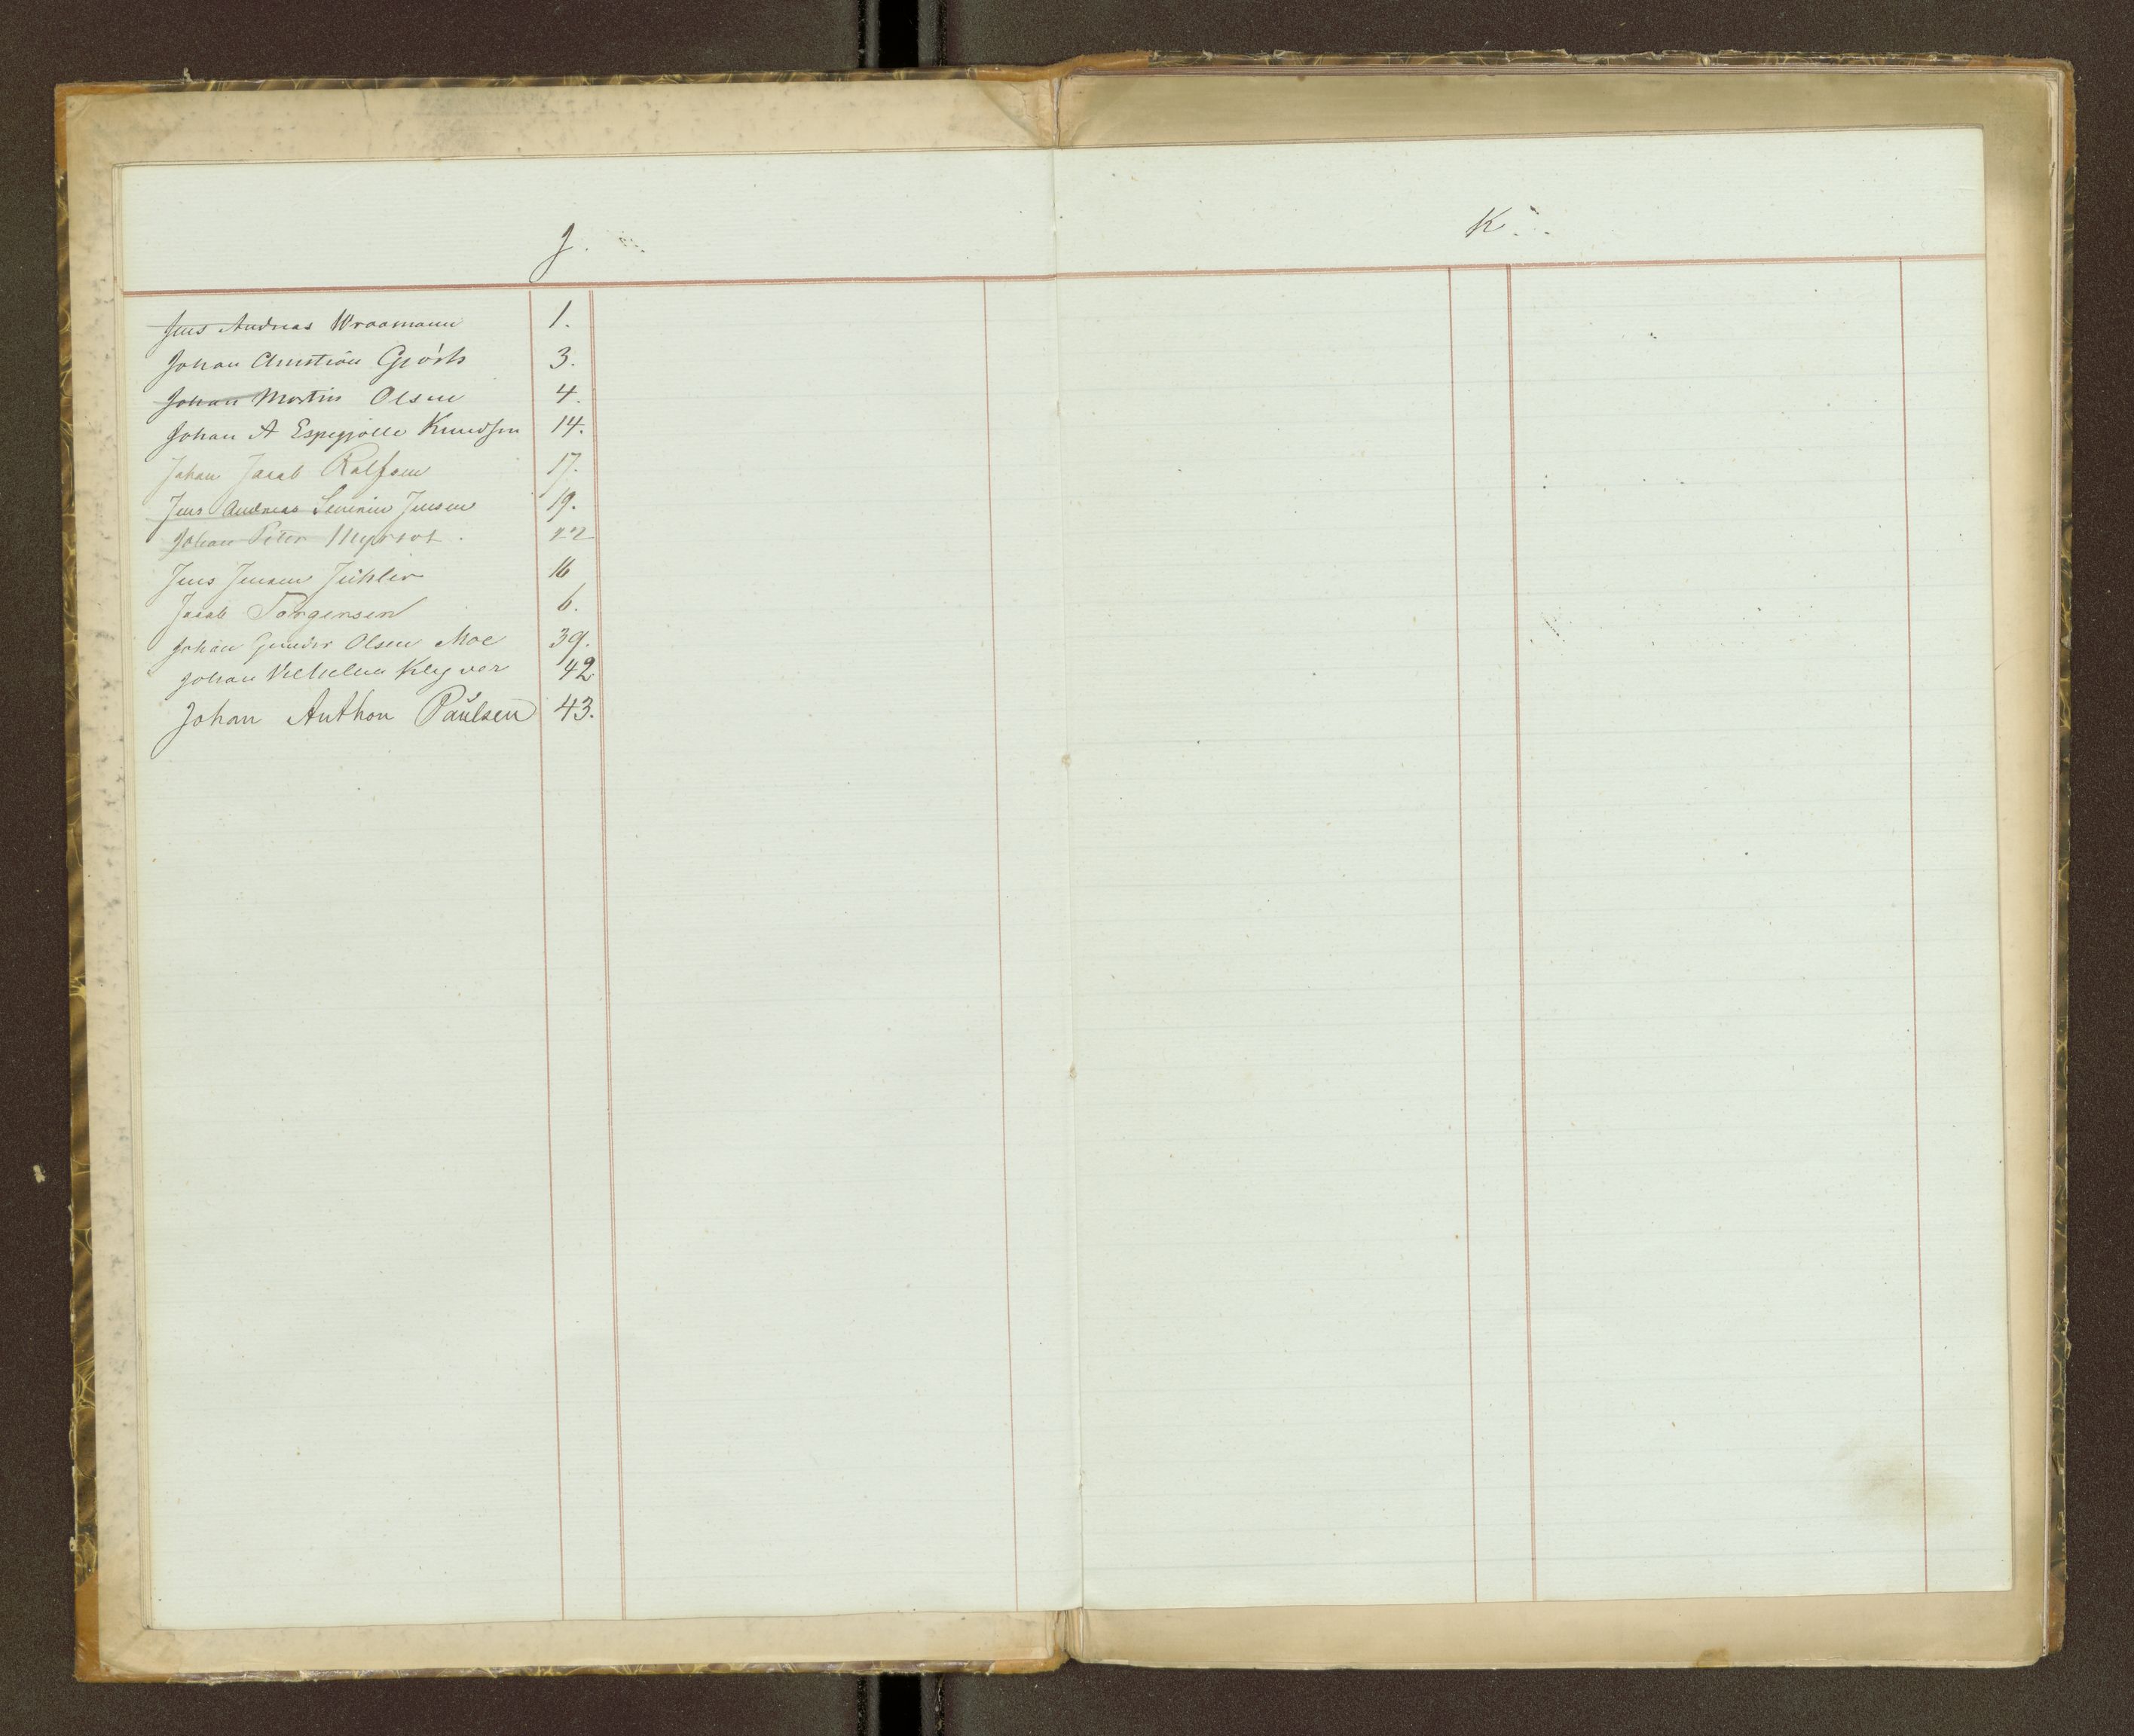 J.
Jens Andreas Wraamann 1.
Johan Christian Gjörts 3.
Johan Martin Olsen 4.
Johan A Espegjolle Knudsen 14.
Johan Jacob Rolfsen 17.
Jens Andreas Severin Jensen 19.
Johan Peter 22
Jens Jensen 16
Jacob Torgersen 6.
Johan Gunder Olsen Moe 39.
Johan Vilhelm Klyver 42
Johan Anthon Paulsen 43.
K.